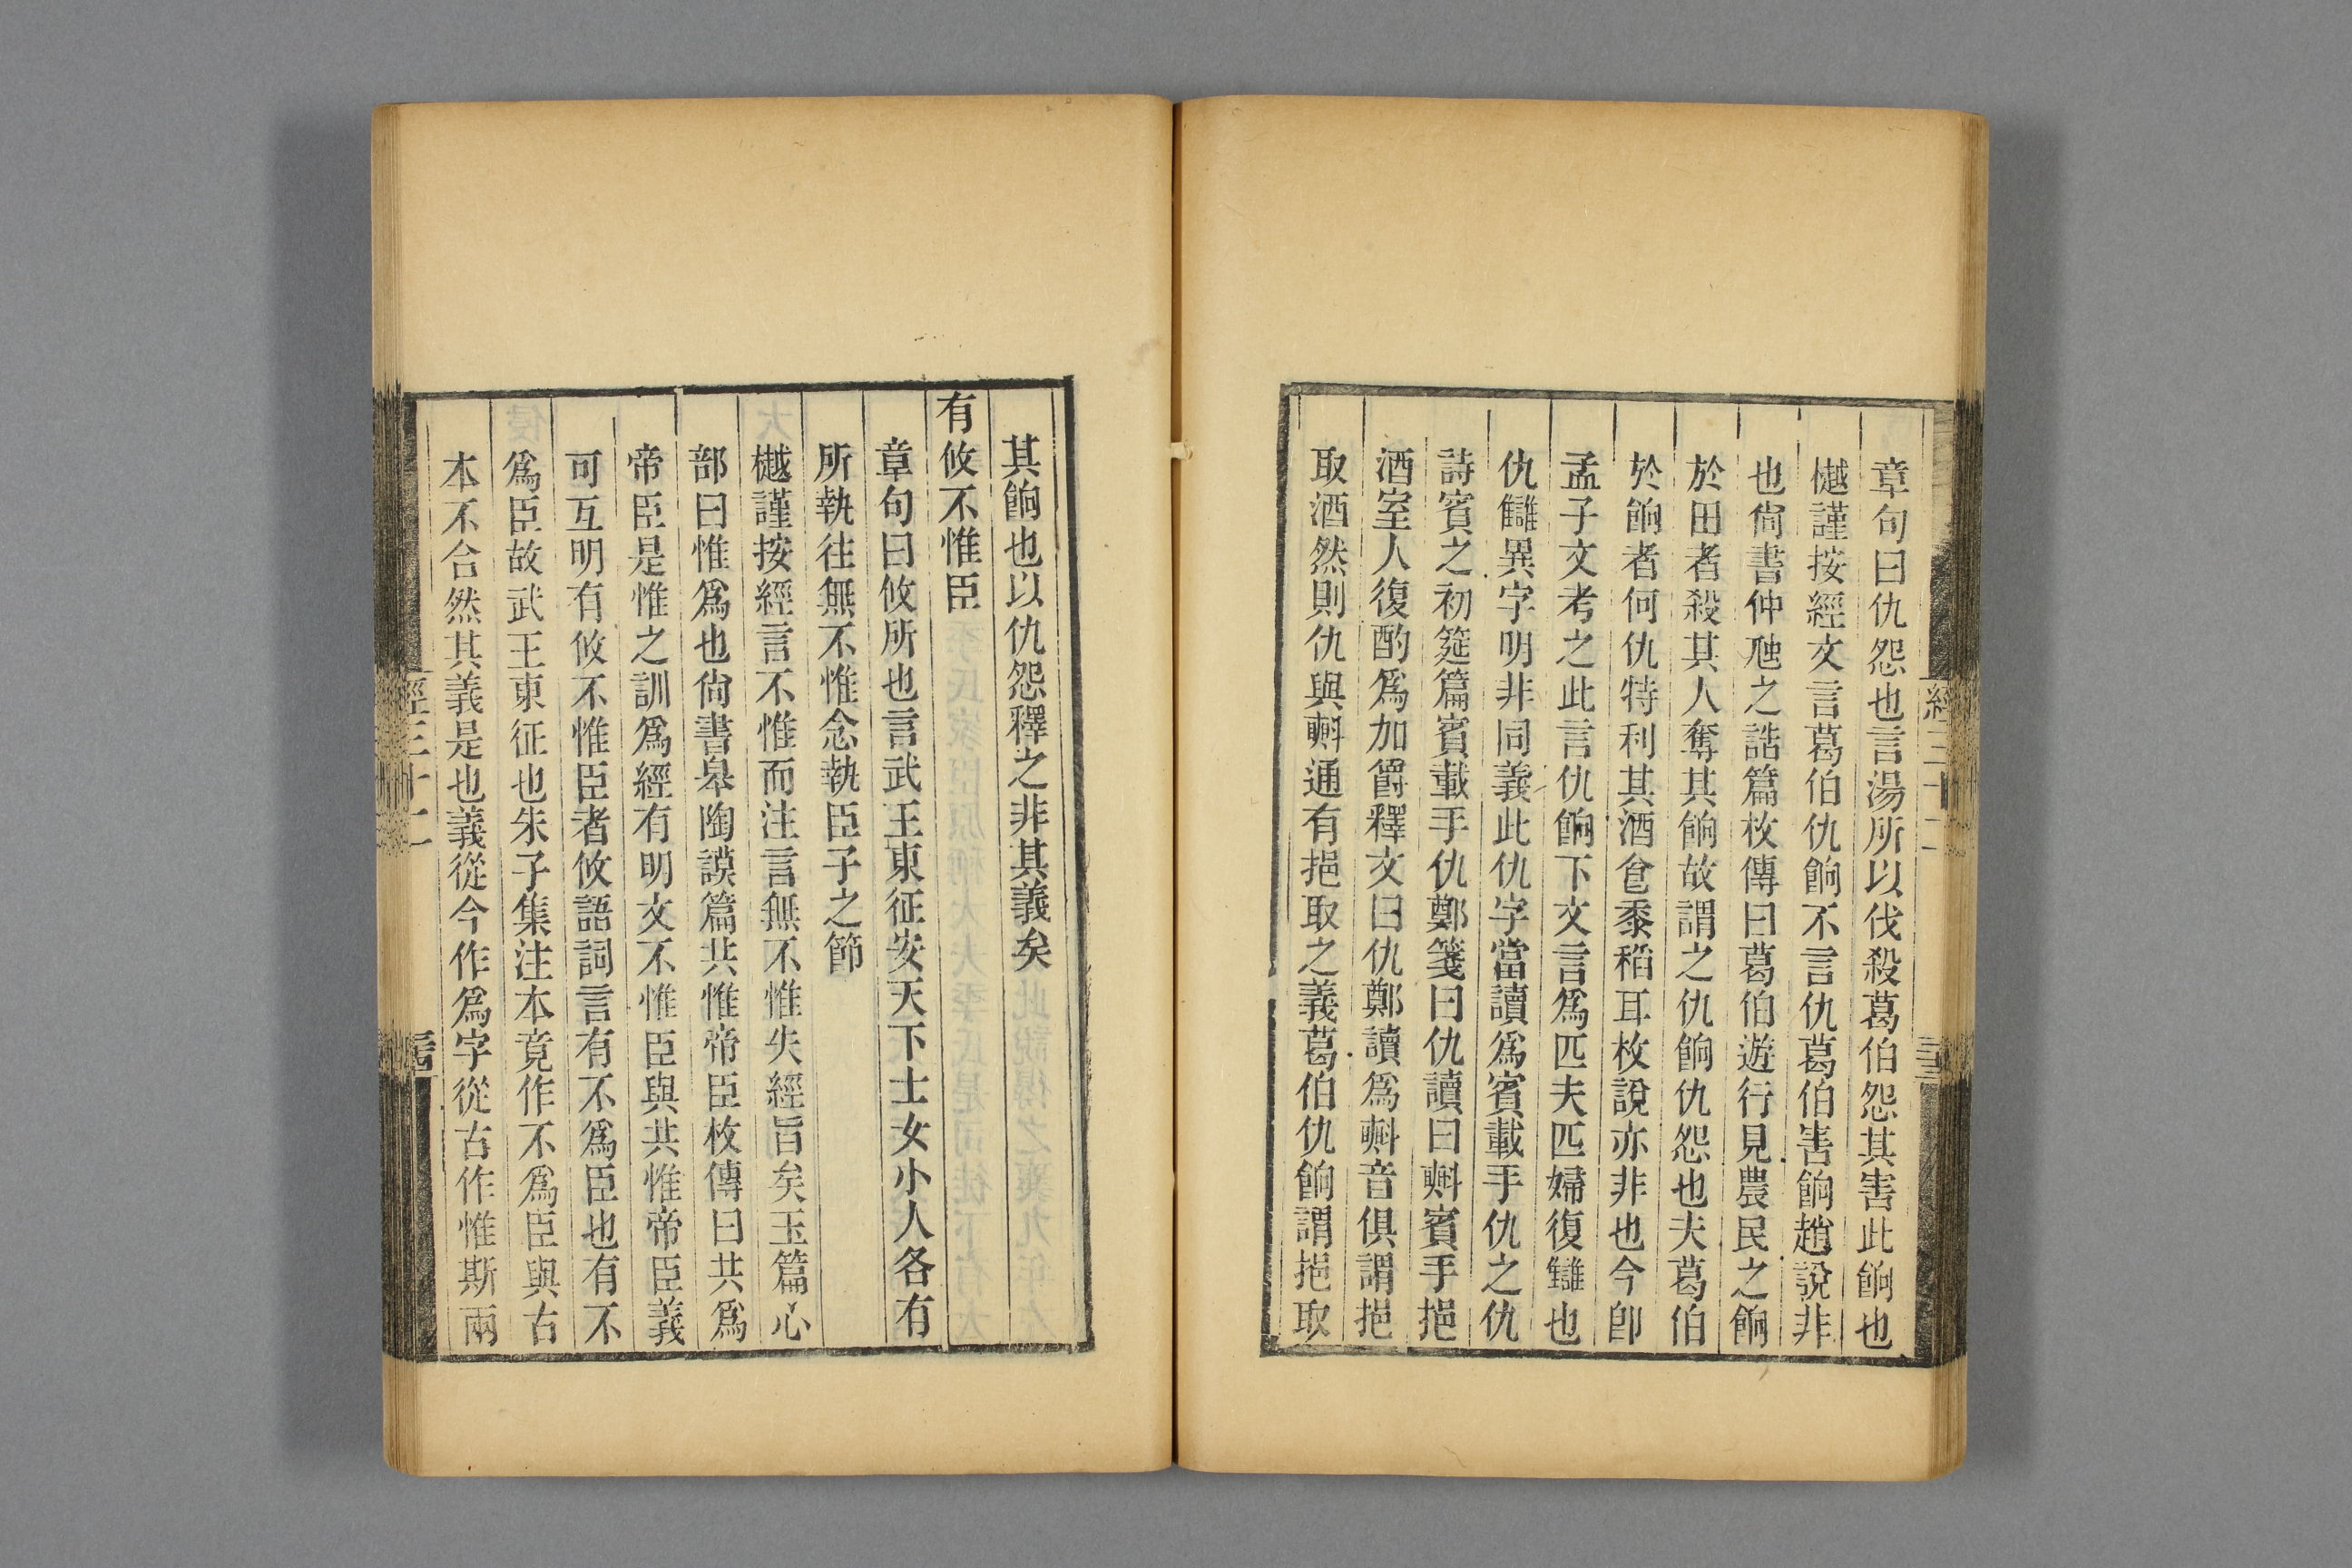 章句曰仇怨也言湯所以伐殺葛伯怨其害此餉也
樾謹按經文言葛伯仇餉不言仇葛伯害餉趙說非
也尙書仲虺之誥篇枚傳曰葛伯遊行見農民之餉
於田者殺其人奪其餉故謂之仇餉仇怨也夫葛伯
於餉者何仇特利其酒食黍稻耳枚說亦非也今卽
孟子文考之此言仇餉下文言爲匹夫匹婦復讎也
仇讎異字明非同義此仇字當讀爲賓載手仇之仇
詩賓之初筵篇賓載手仇鄭箋曰仇讀曰㪺賓手挹
酒室人復酌爲加爵釋文曰仇鄭讀爲㪺音俱謂挹
取酒然則仇與㪺通有挹取之義葛伯仇餉謂挹取
經三十二
其餉也以仇怨釋之非其義矣
有攸不惟臣
章句曰攸所也言武王東征安天下士女小人各有
所執往無不惟念執臣子之節
樾謹按經言不惟而注言無不惟失經旨矣玉篇心
部曰惟爲也尙書皋陶謨篇共惟帝臣枚傳曰共爲
帝臣是惟之訓爲經有明文不惟臣與共惟帝臣義
可互明有攸不惟臣者攸語詞言有不爲臣也有不
爲臣故武王東征也朱子集注本竟作不爲臣與古
本不合然其義是也義從今作爲字從古作惟斯兩
經三十二